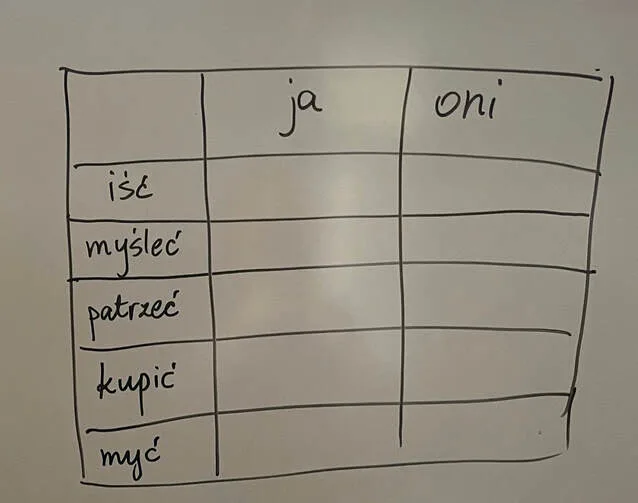 ja oni
iść
myśleć
patrzeć
kupić
myć